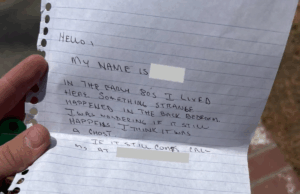 HELLO,
MY NAME IS
IN THE EARLY 80'S I LIVED
HERE. SOMETHING STRANGE
HAPPENED IN THE BACK BEDROOM
I WAS WONDERING IF IT STILL
HAPPENS. I THINK IT WAS
A GHOST.
IF IT STILL COMES, CALL
ME AT